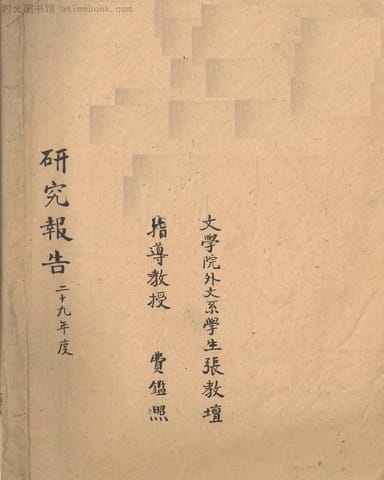 时光图书馆 atimebook.com
文學院外文系學生張教壇
指導教授 費鑑照
研究報告 二十九年度